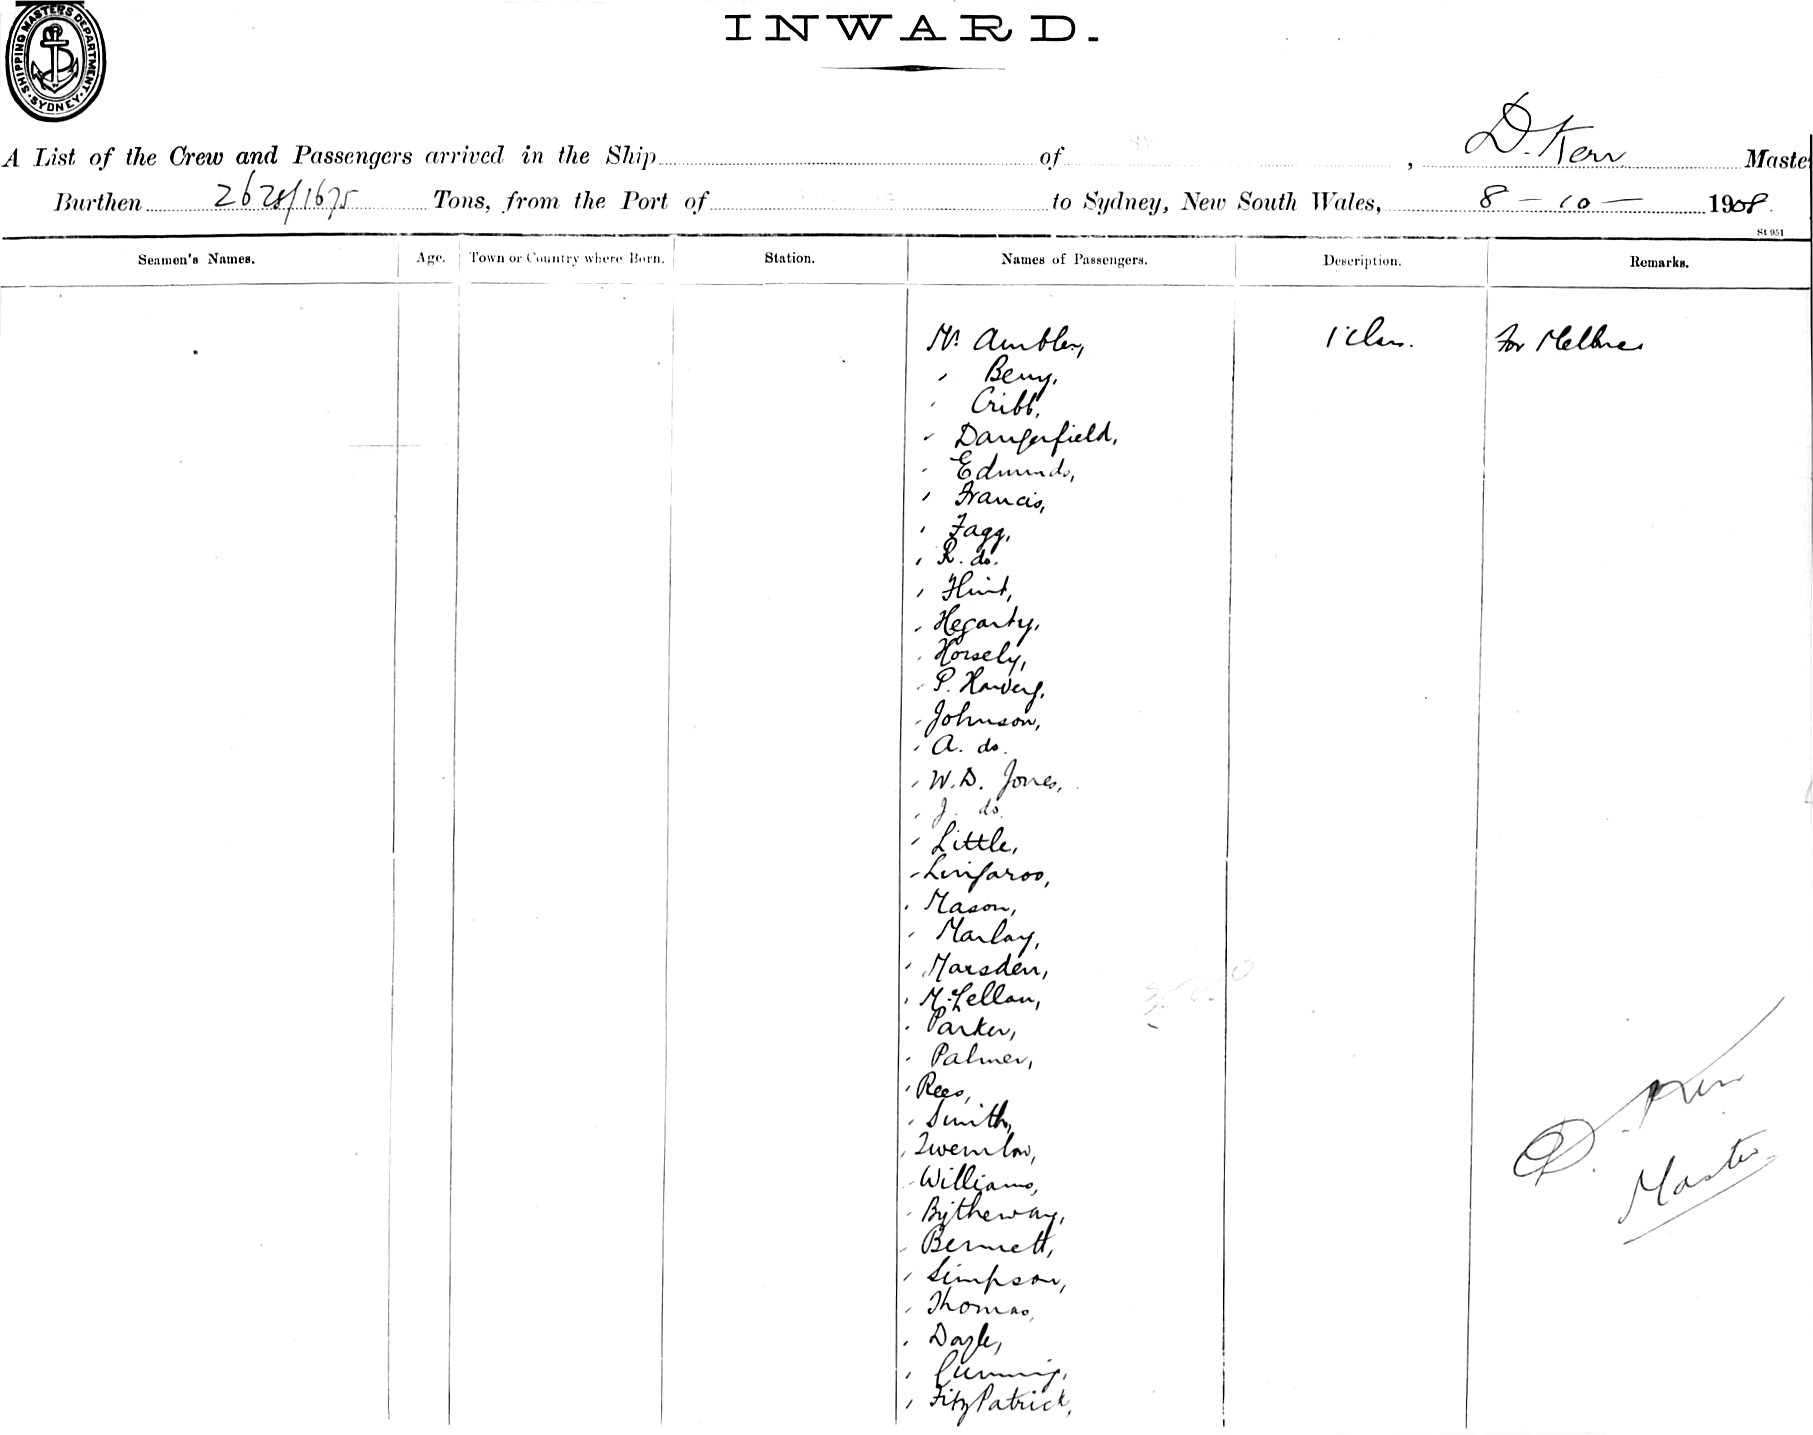 INWARD.
SHIPPING MASTERS DEPARTMENT. SYDNEY.
A List of the Crew and Passengers arrived in the Ship of , D. Kerr Maste
Burthen 2628/1675 Tons, from the Port of to Sydney, New South Wales, 8 - 10 - 1908.
St 951
Seamen's Names. Age. Town or Country where Born. Station. Names of Passengers. Description. Remarks.
Mr. Ambler, 1 Clas. For Melbne
" Berry,
" Cribb,
" Dangerfield,
" Edmunds,
" Francis,
" Fagg,
" R. do.
" Flint,
" Hegarty,
" Horsely,
" P.
" Johnson,
" A. do.
" W.D. Jones,
" J. do.
" Little,
" Lingaroo,
" Mason,
" Marlay,
" Marsden,
" McLellan,
" Parker,
" Palmer,
" Rees,
" Smith,
" Twemlow,
" Williams,
" Bytheway,
" Bennett,
" Simpson,
" Thomas,
" Doyle,
" Cumming,
" FitzPatrick,
D. Kerr
Master